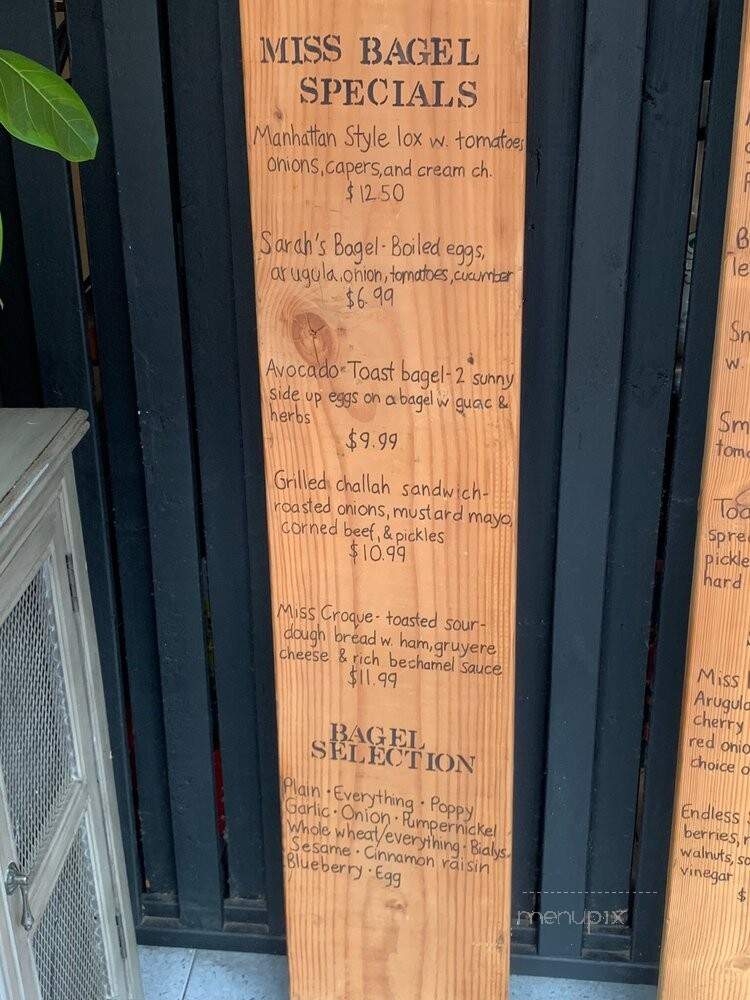 MISS BAGEL
SPECIALS
Manhattan Style lox w. tomatoes
onions, capers, and cream ch.
$12.50
Sarah's Bagel - Boiled eggs,
arugula, onion, tomatoes, cucumber
$6.99
Avocado Toast bagel - 2 sunny
side up eggs on a bagel w guac &
herbs
$9.99
Grilled challah sandwich -
roasted onions, mustard mayo,
corned beef, & pickles
$10.99
Miss Croque - toasted sour-
dough bread w. ham, gruyere
cheese & rich bechamel sauce
$11.99
BAGEL
SELECTION
Plain · Everything · Poppy
Garlic · Onion · Pumpernickel
Whole wheat/everything · Bialys
Sesame · Cinnamon raisin
Blueberry · Egg
w.
Miss
Arugula
cherry
red onio
choice o
Endless
berries, r
walnuts, sa
vinegar
$
menupix